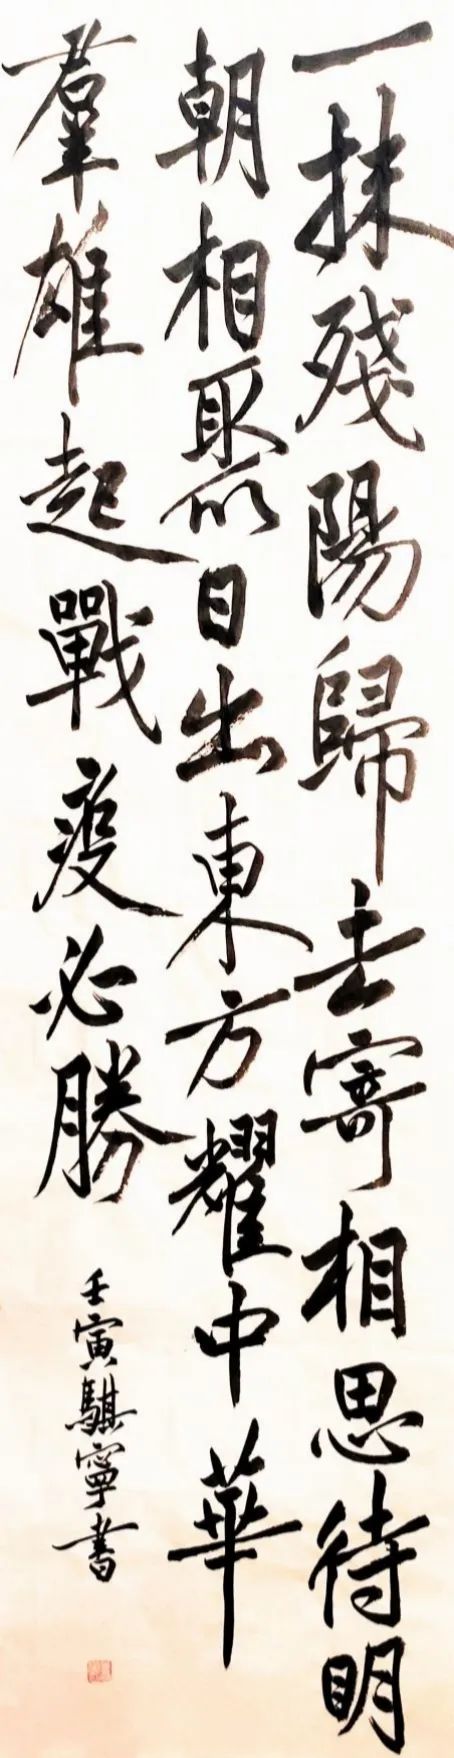 一抹殘陽歸去寄相思待明
朝相聚日出東方耀中華
羣雄起戰疫必勝
壬寅騏寧書